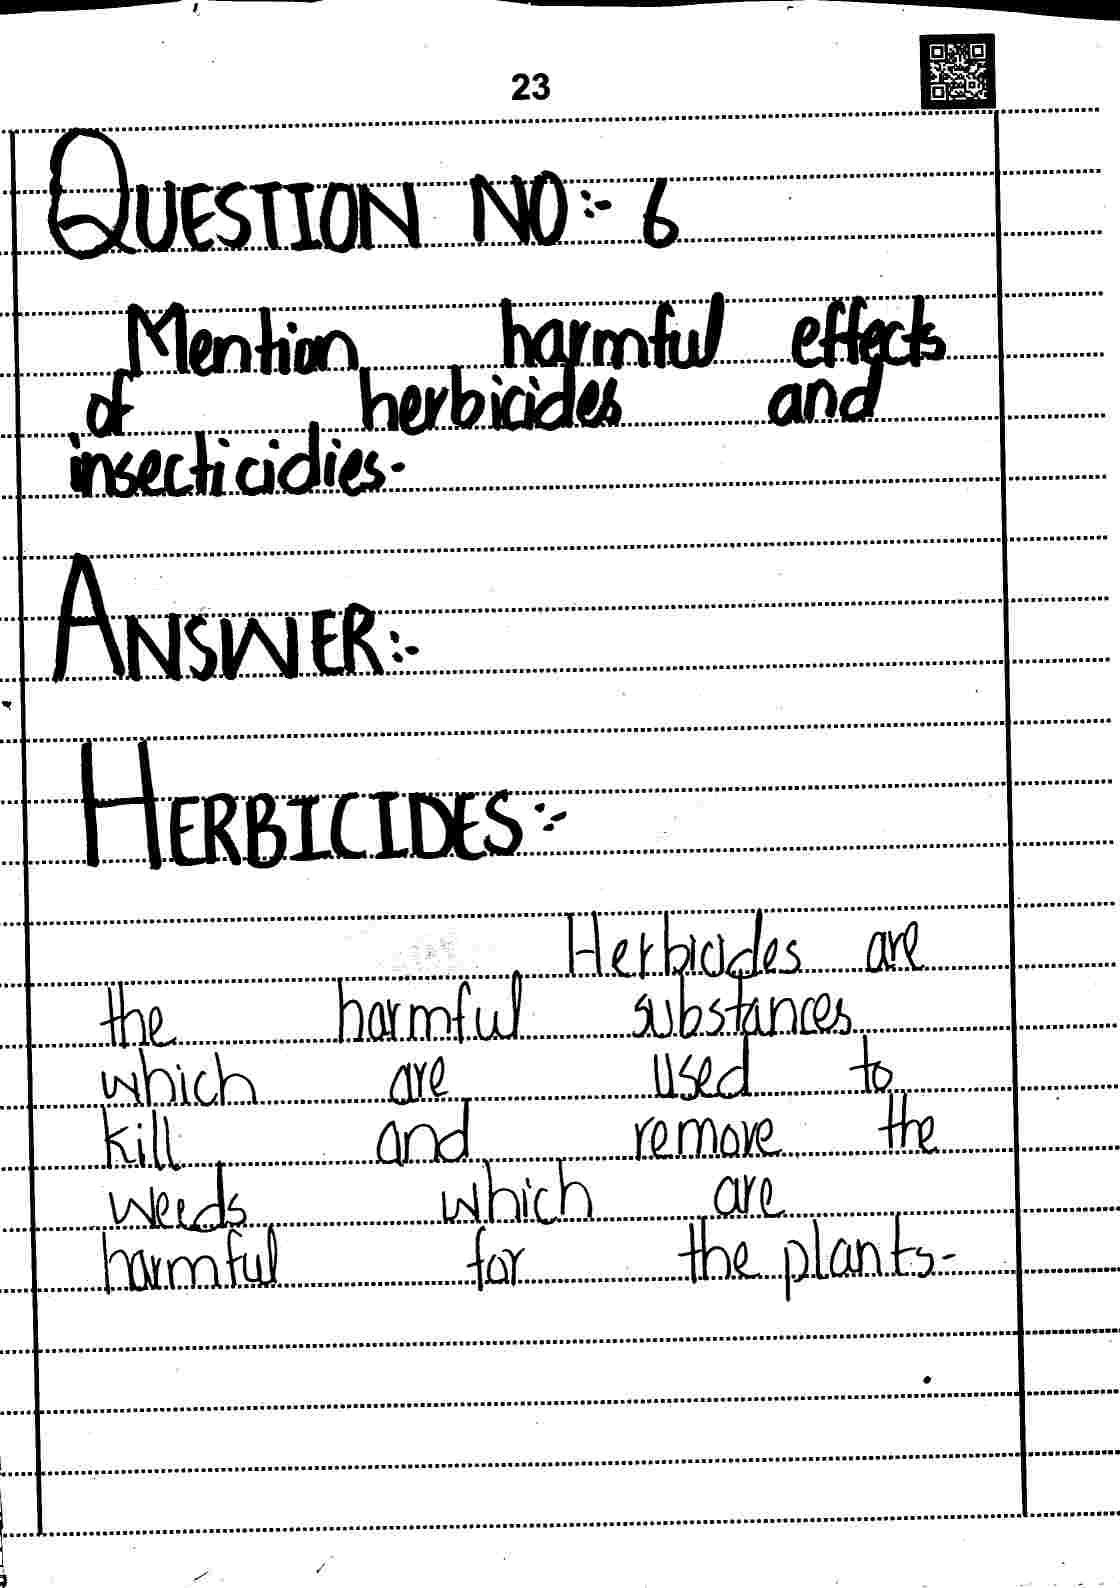 23
QUESTION NO:- 6
Mention harmful effects
of herbicides and
insecticidies.
ANSWER:-
HERBICIDES:-
Herbicides are
the harmful substances
which are used to
kill and remove the
weeds which are
harmful for the plants-